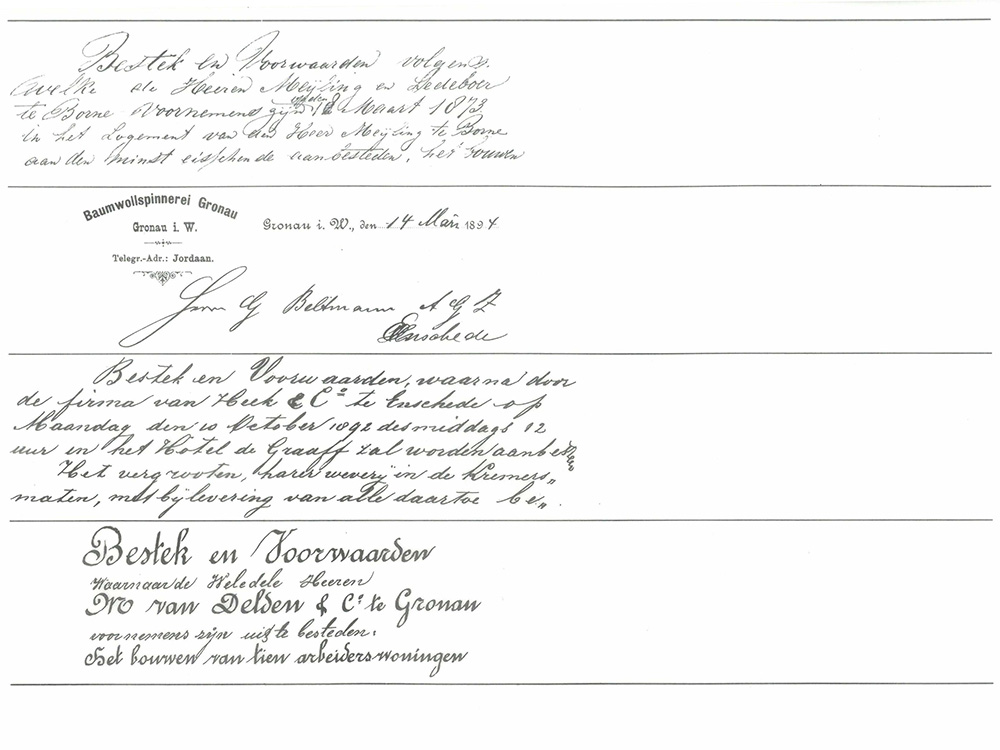 Bestek en Voorwaarden volgens
welke de Heeren Meijling en Ledeboer
te Borne Voornemens zijn 18 Maart 1873
in het Logement van den Heer Meijling te Borne
aan den minst eisschende aanbesteden, het bouwen
Baumwollspinnerei Gronau
Gronau i. W.
Telegr.-Adr.: Jordaan.
Gronau i. W., den 14 März 1894
Herrn G Beltmann A G Z
Enschede
Bestek en Voorwaarden, waarna door
de firma van Heek & Co te Enschede op
Maandag den 10 October 1892 des middags 12
uur in het Hotel de Graaff zal worden aanbesteed
Het vergrooten, harer weverij in de Kremers„
maten, met bijlevering van alle daartoe be„.
Bestek en Voorwaarden
Waarnaar de Weledele Heeren
van Delden & Co te Gronau
voornemens zijn uit te besteden:
Het bouwen van tien arbeiderswoningen